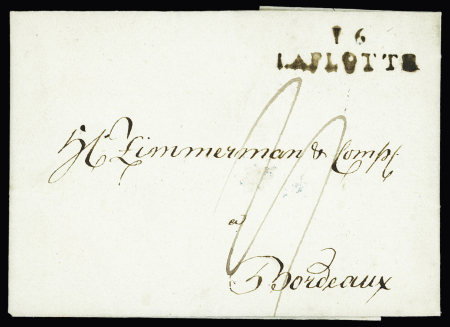 16
LAFLOTTE
Zimmerman & Comp.
a
Bordeaux